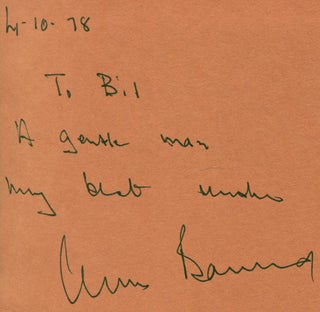 4-10-78
To Bill
A gentle man
my best wishes